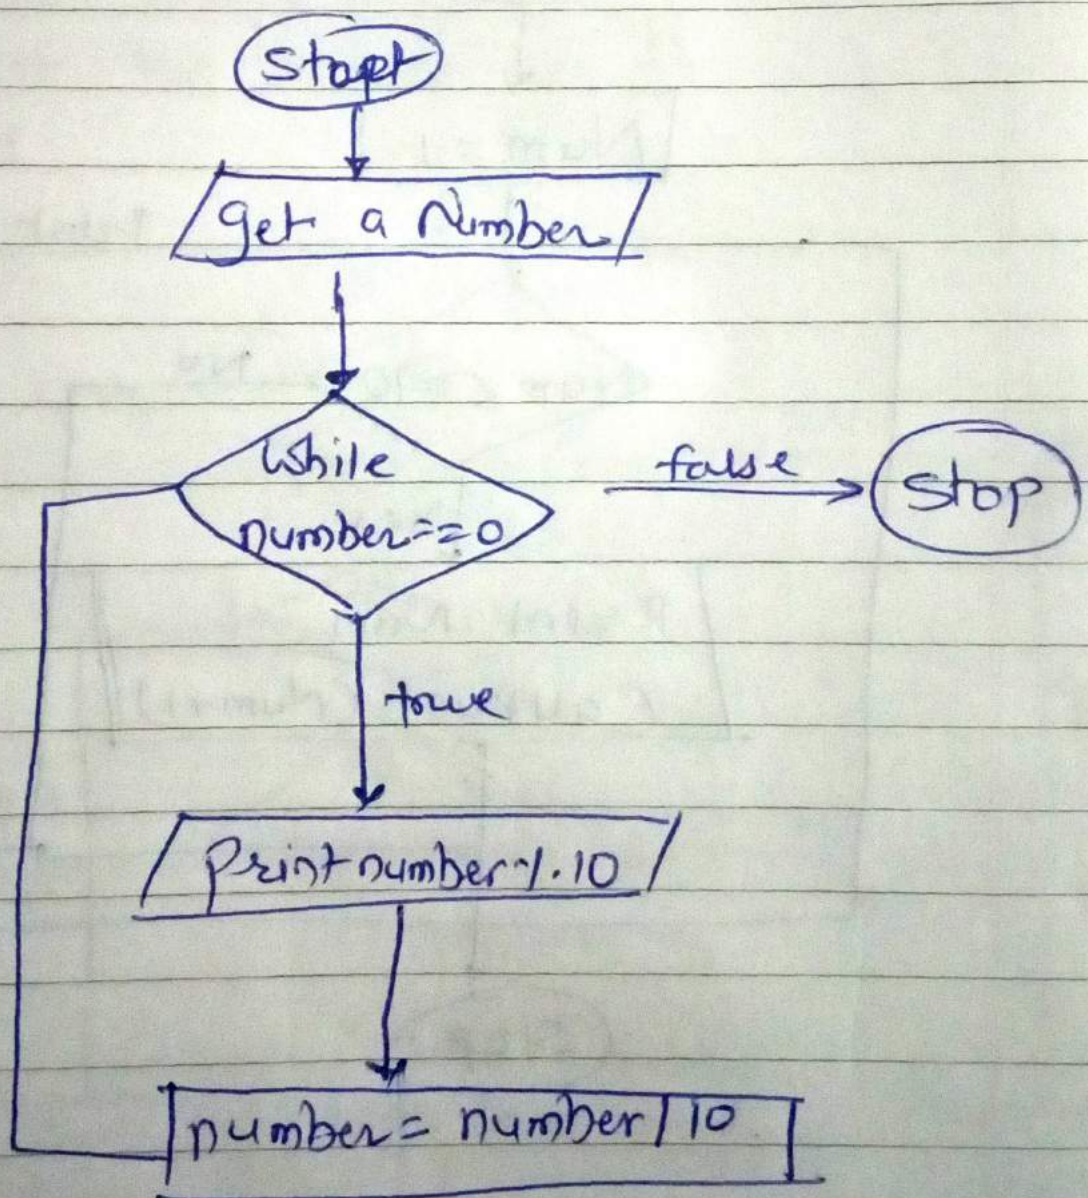 Start
get a Number
While
number==0
false
Stop
true
Print number%10
number = number/10